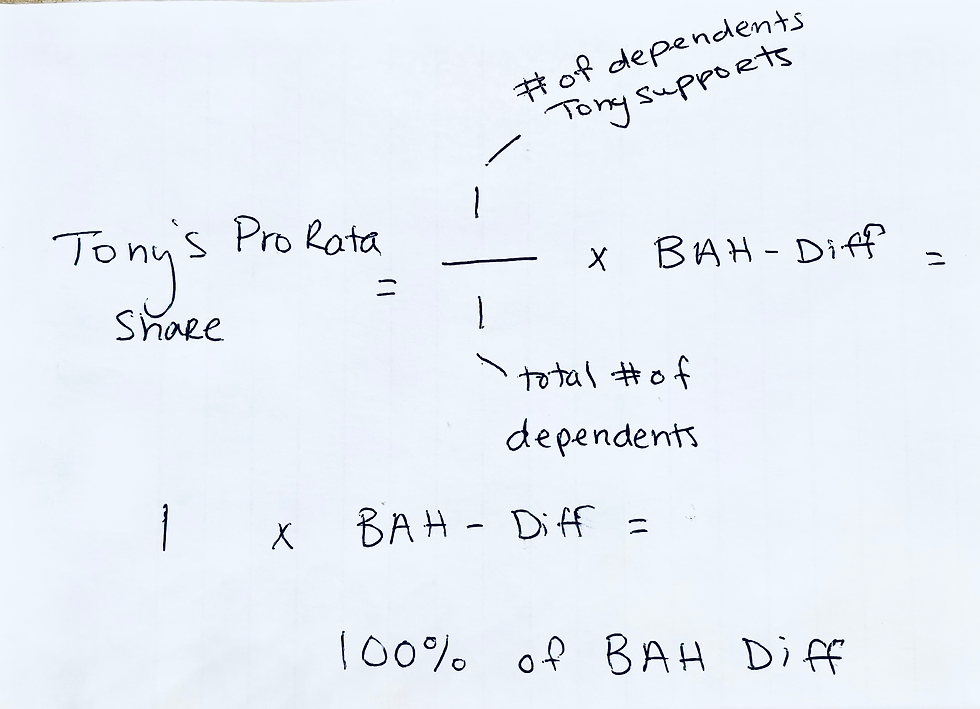 # of dependents
Tony supports
1
Tony's Pro Rata
Share
=
x BAH - Diff =
1
total # of
dependents
1 x BAH - Diff =
100% of BAH Diff